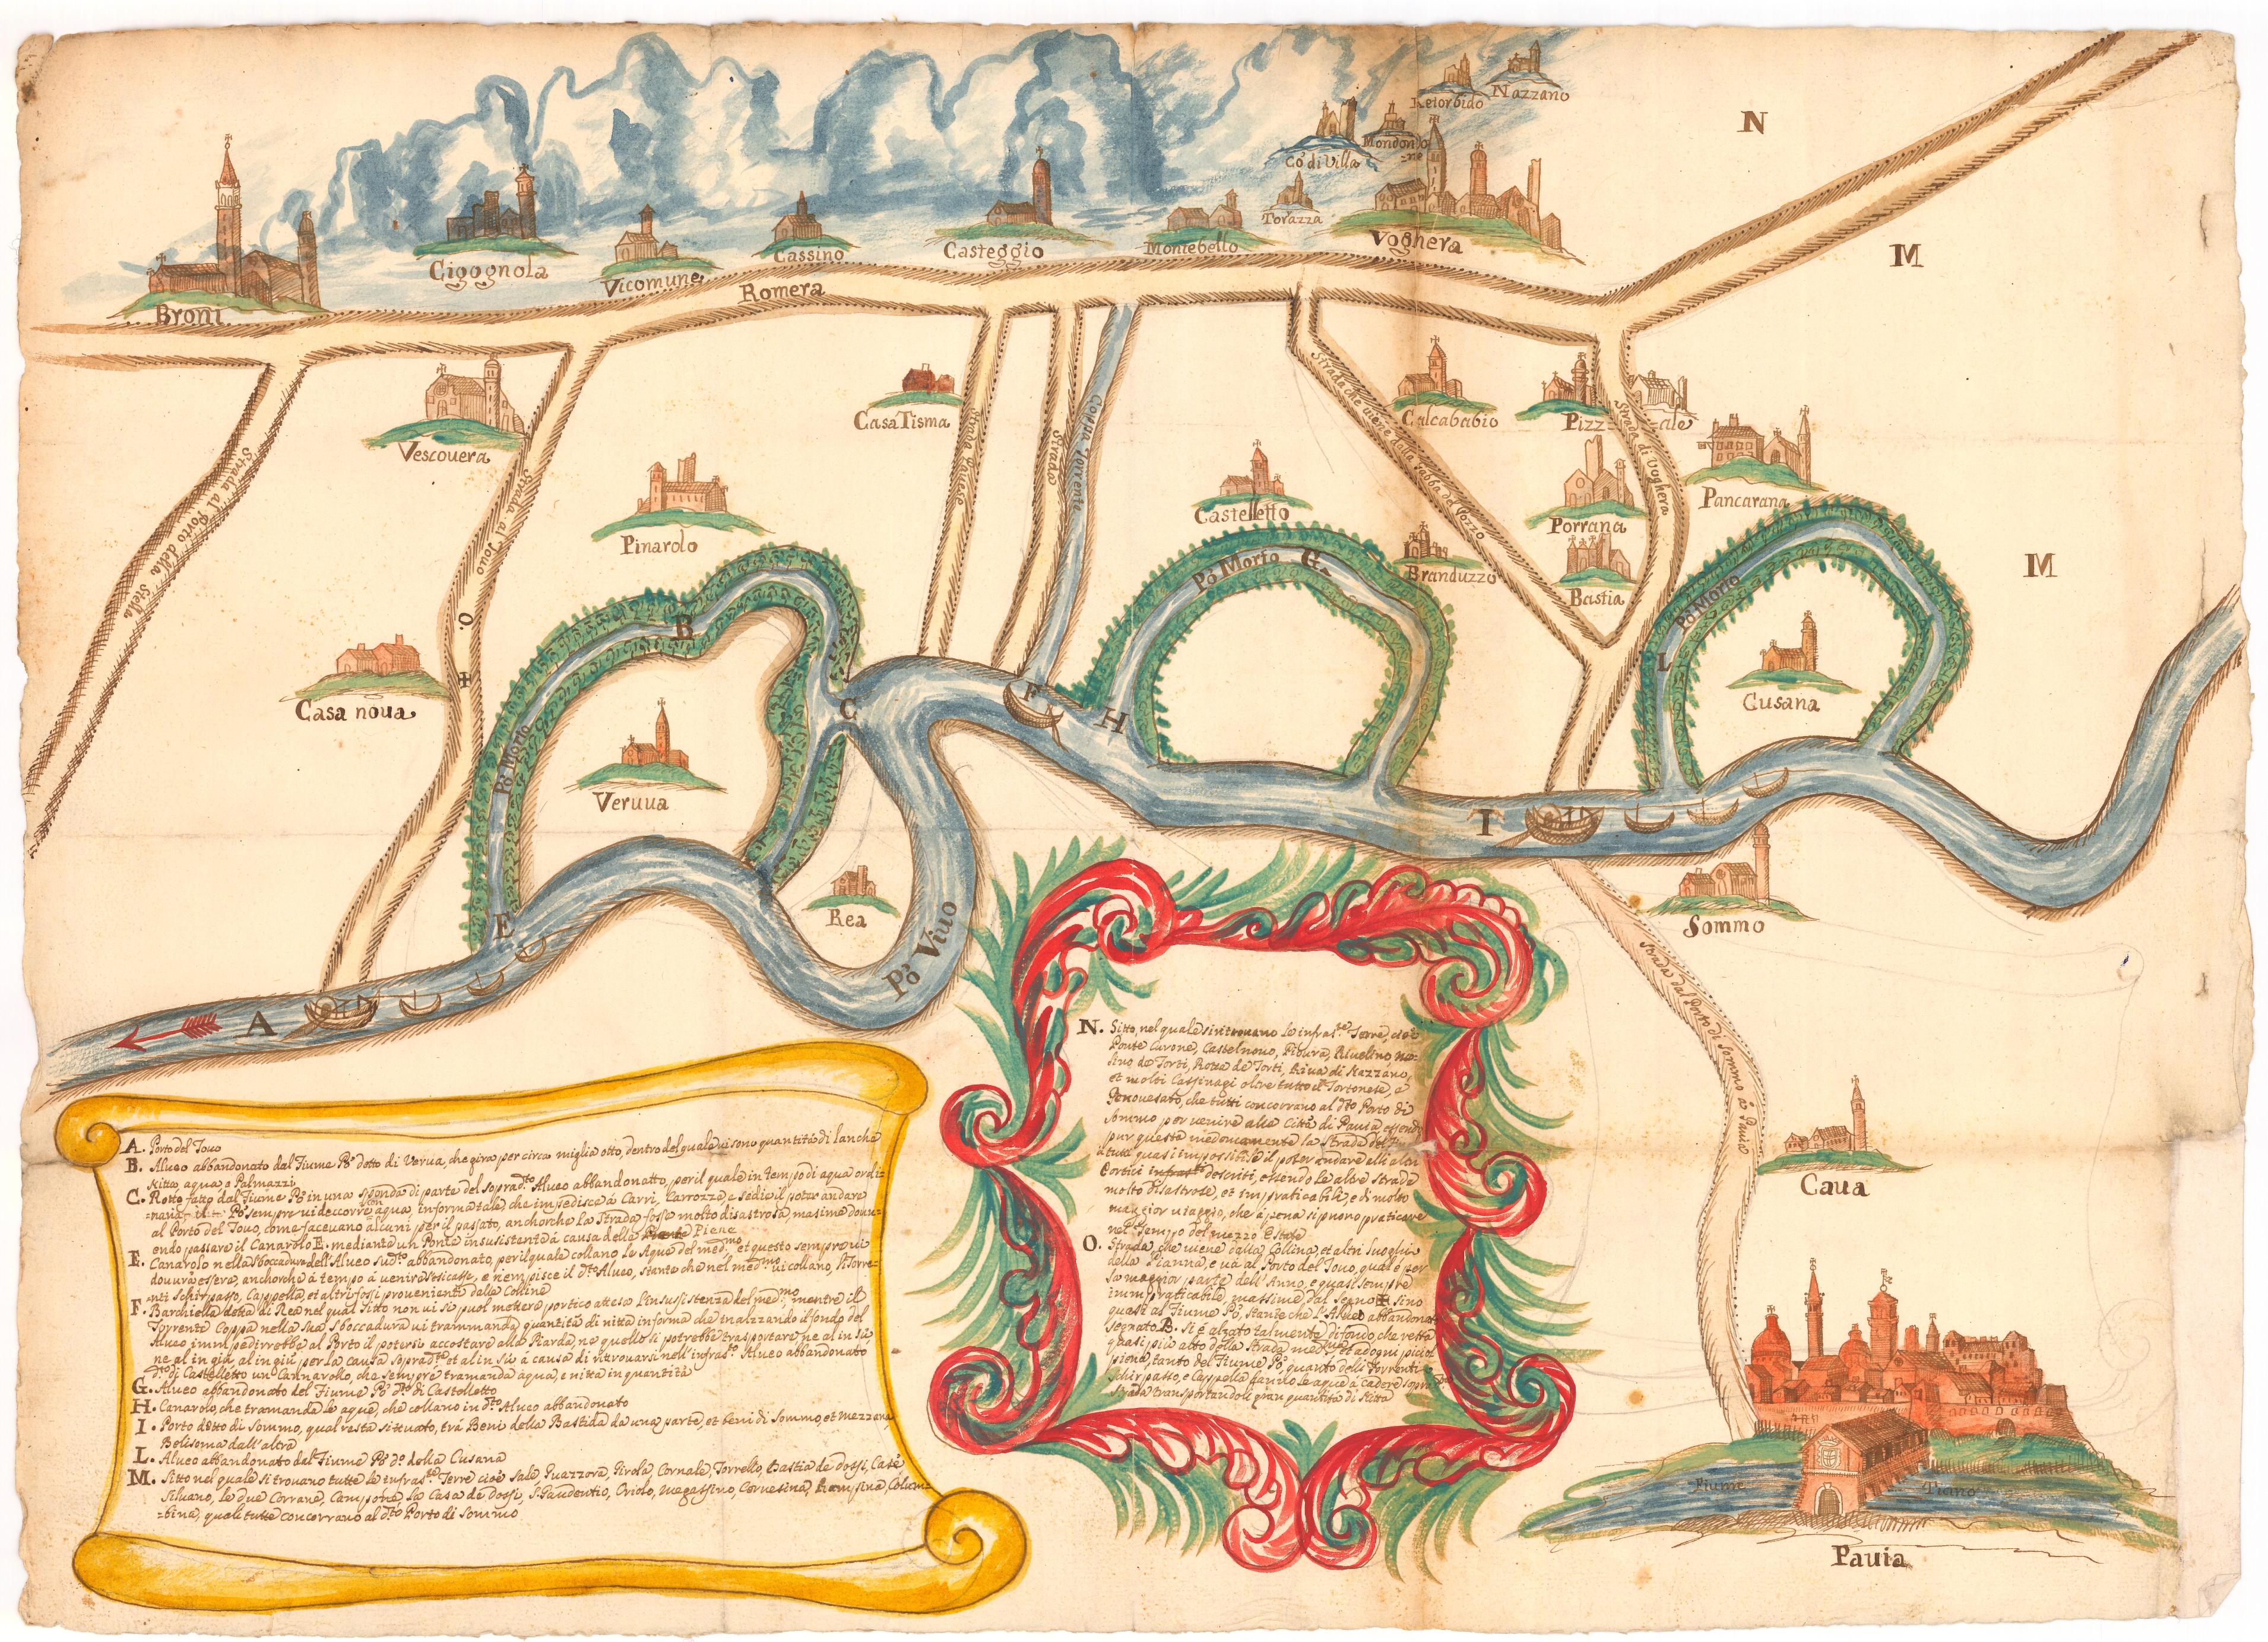 Retorbido
Nazzano
N
Mondondo
=ne
Co' di Villa
Torazza
Broni
Cigognola
Vicomune
Cassino
Casteggio
Montebello
Voghera
Romera
M
Vescovera
Casa Tisma
Calcababio
Pizz=ale
Pancarana
Strada al Porto della Stella
Strada al Touo
Strada Pauese
Strada
Coppa Torrente
Strada che viene dalla
del Pozzo
Strada di Voghera
Pinarolo
Castelletto
Porrana
Branduzzo
Bastia
M
Po Morto
G.
Po Morto
B
O.
L
Casa noua
C
F
H
Cusana
Veruua
Po Morto
E
I
Rea
Sommo
Po Viuo
A
Strada dal Porto di Sommo a Pauia
Caua
Fiume Ticino
Pauia
A. Porto del Touo
B. Alueo abbandonato dal Fiume Po detto di Verua, che gira per circa miglia otto dentro del quale ui sono quantità di lanche
nitta, aqua, e Palmazzi
C. Rotto fatto dal Fiume Po in una sponda di parte del soprad.to Alueo abbandonatto, per il quale in tempo di aqua ordi-
=naria il Po sempre ui decorre aqua, informa tale che impedisce à Carri, Carrozze, e sedie il poter andare
al Porto del Touo, come faceuano alcuni per il passato, anchorche la Strada fosse molto disastrosa, masime douu-
endo passare il Canarolo E. mediante un Ponte insusistente à causa della Piene
E. Canarolo nella sboccadura dell'Alueo sud.to abbandonato, per il quale collano le Aque del med.mo, et questo sempre ui
douurà essere, anchorche à tempo à venire, e riempisce il d.to Alueo, stante che nel med.mo ui collano, li Torre-
nti Schirpasso, Cappella, et altri fossi provenienti dalle Colline
F. Barchiella detta di Rea nel qual Sitto non ui si puol mettere portico attesa l'Insussistenza del med.mo, mentre il
Torrente Coppa nella sua sboccadura ui trammanda quantità di nitta informa che inalzando il fondo del
Alueo impedirrebbe al Porto il potersi accostare alla Riarda, ne quello si potrebbe trasportare ne al in sù
ne al in giù, al in giù per la causa soprad.ta et al in sù à causa di ritrouarsi nell'infras.to Alueo abbandonato
d.to di Castelletto un Cannarollo, che sempre tramanda aqua, e nitta in quantità
G. Alueo abbandonato del Fiume Po d.to di Castelletto
H. Canarolo, che tramanda le aque, che collano in d.to Alueo abbandonato
I. Porto detto di Sommo, qual resta sittuato, trà Beni della Bastida da una parte, et beni di Sommo, et Mezzana
Belisoma dall'altra
L. Alueo abbandonato dal Fiume Po d.o della Cusana
M. Sitto nel quale si trouano tutte le infras.tte Terre cioè Sale, Guazzora, Pirola, Cornale, Torrello, Bastia de dossi, Casè
Siluano, le due Corrane, Campone, la Casa de dossi, S. Gaudentio, Oriolo, Megassino, Coruesina, Colum-
=bina, quali tutte concorrano al d.to Porto di Sommo
N. Sitto, nel quale si ritrouano le infras.tte Terre, cioè
Ponte Curone, Castelnouo, Riuelino mo-
lino de Torti, Rotta de Torti, Riua di Nazzano,
et molti Cassinagi oltre tutto il Tortonese, e
Genouesato, che tutti concorrano al d.to Porto di
Sommo per venire alla Città di Pauia essend
pur questa medemamente la Strada
à tutti quasi impossibile il poter andare alli altri
Portici infras.tti descritti, essendo le altre strade
molto disastrose, et impraticabili, e di molto
maggior uiaggio, che à pena si puono praticare
nel Tempo del mezzo Estate
O. Strada, che uiene dalla Collina, et altri luoghi
della Pianna, e uà al Porto del Touo, qual è per
la maggior parte dell'Anno, e quasi sempre
impraticabile massime dal segno ✠ sino
quasi al Fiume Po, stante che l'Alueo abbandonat
segnato B. si è alzato talmente di fondo, che resta
quasi più alto della Strada med.ma et ad ogni picciol
piena, tanto del Fiume Po quanto deli Torrenti
Schirpasso, e Cappella fanno le aque à cadere sopra
strada transportandole gran quantità di Nitta